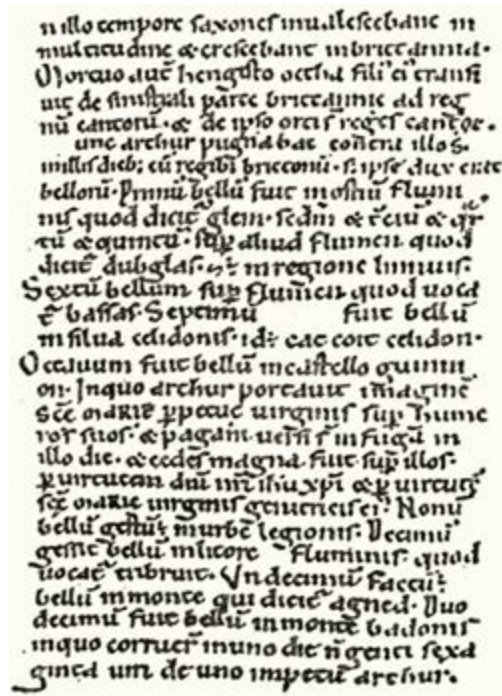 n illo tempore saxones inualescebant in
multitudine & crescebant in brittannia.
Mortuo aut̄ hengisto octha fili' ei' transi
uit de sinistrali parte brittannie ad reg
nū cantorū. & de ipso orti s̄ reges cantor.
unc arthur pugnabat contra illos.
in illis dieb; cū regib; brittonū. s; ipse dux erat
bellorū. Primū bellū fuit in ostiū flumi
nis quod dicit̄ glein. secdm̄ & t̄ciū & qr
tū & quintū. sup̄ aliud flumen quod
dicit̄ dubglas. & ē in regione linnuis.
Sextū bellum sup̄ flumen quod uoca
t̄ bassas. Septimū fuit bellū
in silua celidonis. id ē cat coit celidon.
Octauum fuit bellū in castello guinni
on. In quo arthur portauit imaginē
scē marie p̄petue uirginis sup̄ hume
ros suos. & pagani uersi s̄ in fugā in
illo die. & cedes magna fuit sup̄ illos.
p̄ uirtutem dn̄i nr̄i ih̄u xp̄i & p̄ uirtutē
scē marie uirginis genitricis ei'. Nonū
bellū gestū ē in urbe legionis. Decimū
gessit bellū in litore fluminis. quod
uocat̄ tribruit. Undecimū factū ē
bellū in monte qui dicit̄ agned. Duo
decimū fuit bellū in monte badonis
in quo corruer̄ in uno die n̄genti sexa
ginta uiri de uno impetu arthur.